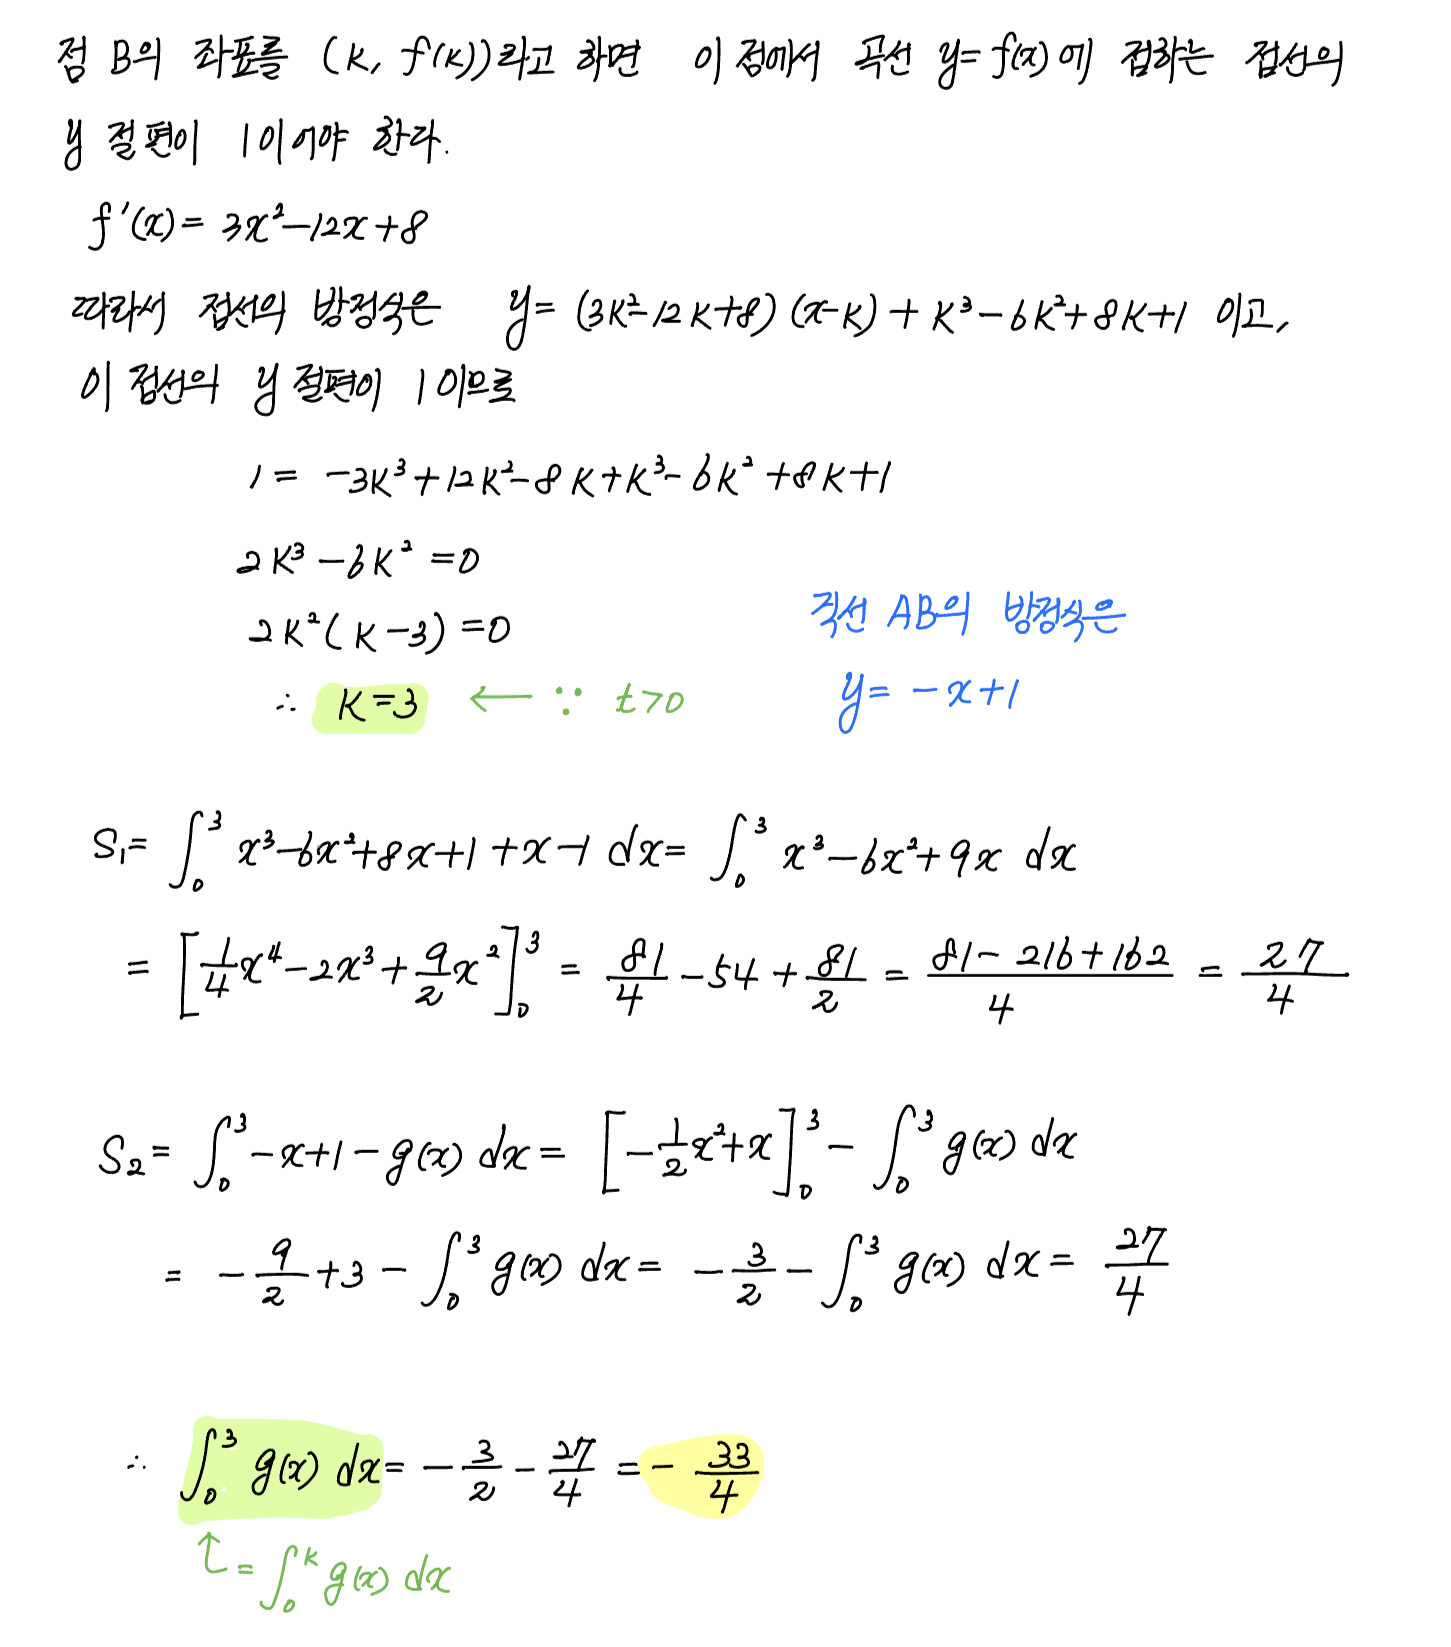 점 B의 좌표를 (k, f(k))라고 하면 이 점에서 곡선 y=f(x)에 접하는 접선의
y절편이 1이어야 한다.
f'(x)= 3x²-12x+8
따라서 접선의 방정식은 y= (3k²-12k+8)(x-k)+k³-6k²+8k+1 이고,
이 접선의 y절편이 1이므로
1= -3k³+12k²-8k+k³-6k²+8k+1
2k³-6k²=0
2k²(k-3)=0
직선 AB의 방정식은
∴ k=3 ← ∵ t>0
y= -x+1
S₁= ∫₀³ x³-6x²+8x+1+x-1 dx= ∫₀³ x³-6x²+9x dx
= [1/4 x⁴-2x³+9/2 x²]₀³ = 81/4 -54+ 81/2 = (81-216+162)/4 = 27/4
S₂= ∫₀³ -x+1-g(x) dx= [-1/2 x²+x]₀³ - ∫₀³ g(x) dx
= -9/2+3- ∫₀³ g(x) dx= -3/2- ∫₀³ g(x) dx= 27/4
∴ ∫₀³ g(x) dx= -3/2 - 27/4 = -33/4
↑= ∫₀ᵏ g(x) dx